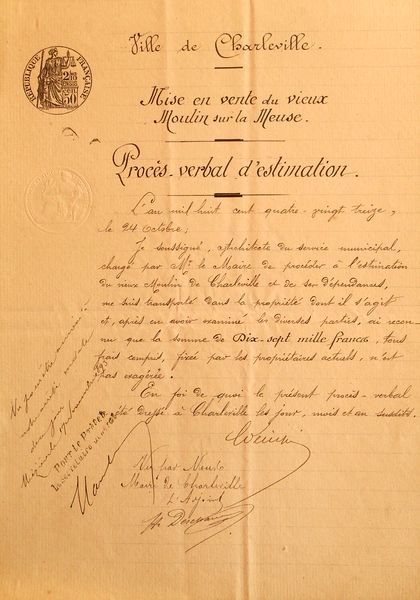 Ville de Charleville.
RÉPUBLIQUE FRANÇAISE
Mise en vente du vieux
Moulin sur la Meuse.
Procès-verbal d'estimation.
L'an mil huit cent quatre-vingt treize,
le 24 Octobre;
Je soussigné, architecte du service municipal,
chargé par Mr. le Maire de procéder à l'estimation
du vieux Moulin de Charleville et de ses dépendances,
me suis transporté dans la propriété dont il s'agit
et, après en avoir examiné les diverses parties, ai recon-
nu que la somme de Dix-sept mille francs, tous
frais compris, fixée par les propriétaires actuels, n'est
pas exagérée.
En foi de quoi le présent procès-verbal
a été dressé à Charleville les jour, mois et an susdits.
Vu par Nous
Maire de Charleville
L'Adjoint
POUR LE PRÉFET